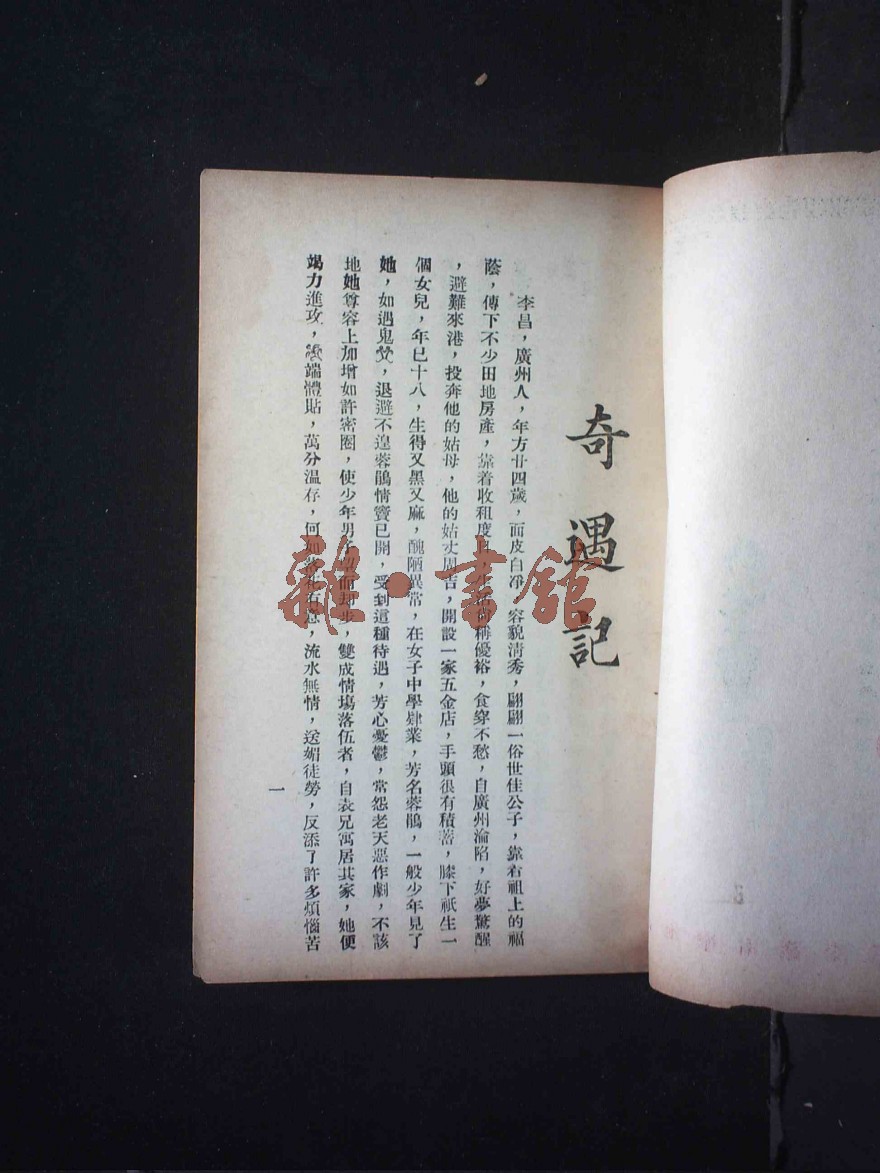 奇遇記
李昌，廣州人，年方廿四歲，面皮白淨，容貌清秀，翩翩一俗世佳公子，靠着祖上的福
蔭，傳下不少田地房產，靠着收租度日，生活尚稱優裕，食穿不愁，自廣州淪陷，好夢驚醒
，避難來港，投奔他的姑母，他的姑丈周吉，開設一家五金店，手頭很有積蓄，膝下祇生一
個女兒，年已十八，生得又黑又麻，醜陋異常，在女子中學肄業，芳名蓉鵑，一般少年見了
她，如遇鬼焭，退避不遑蓉鵑情竇已開，受到這種待遇，芳心憂鬱，常怨老天惡作劇，不該
地她尊容上加增如許密圈，使少年男子而却步，雙成情塲落伍者，自表兄寓居其家，她便
竭力進攻，端體貼，萬分温存，何如落花有意，流水無情，送媚徒勞，反添了許多煩惱苦
一
雜·書館